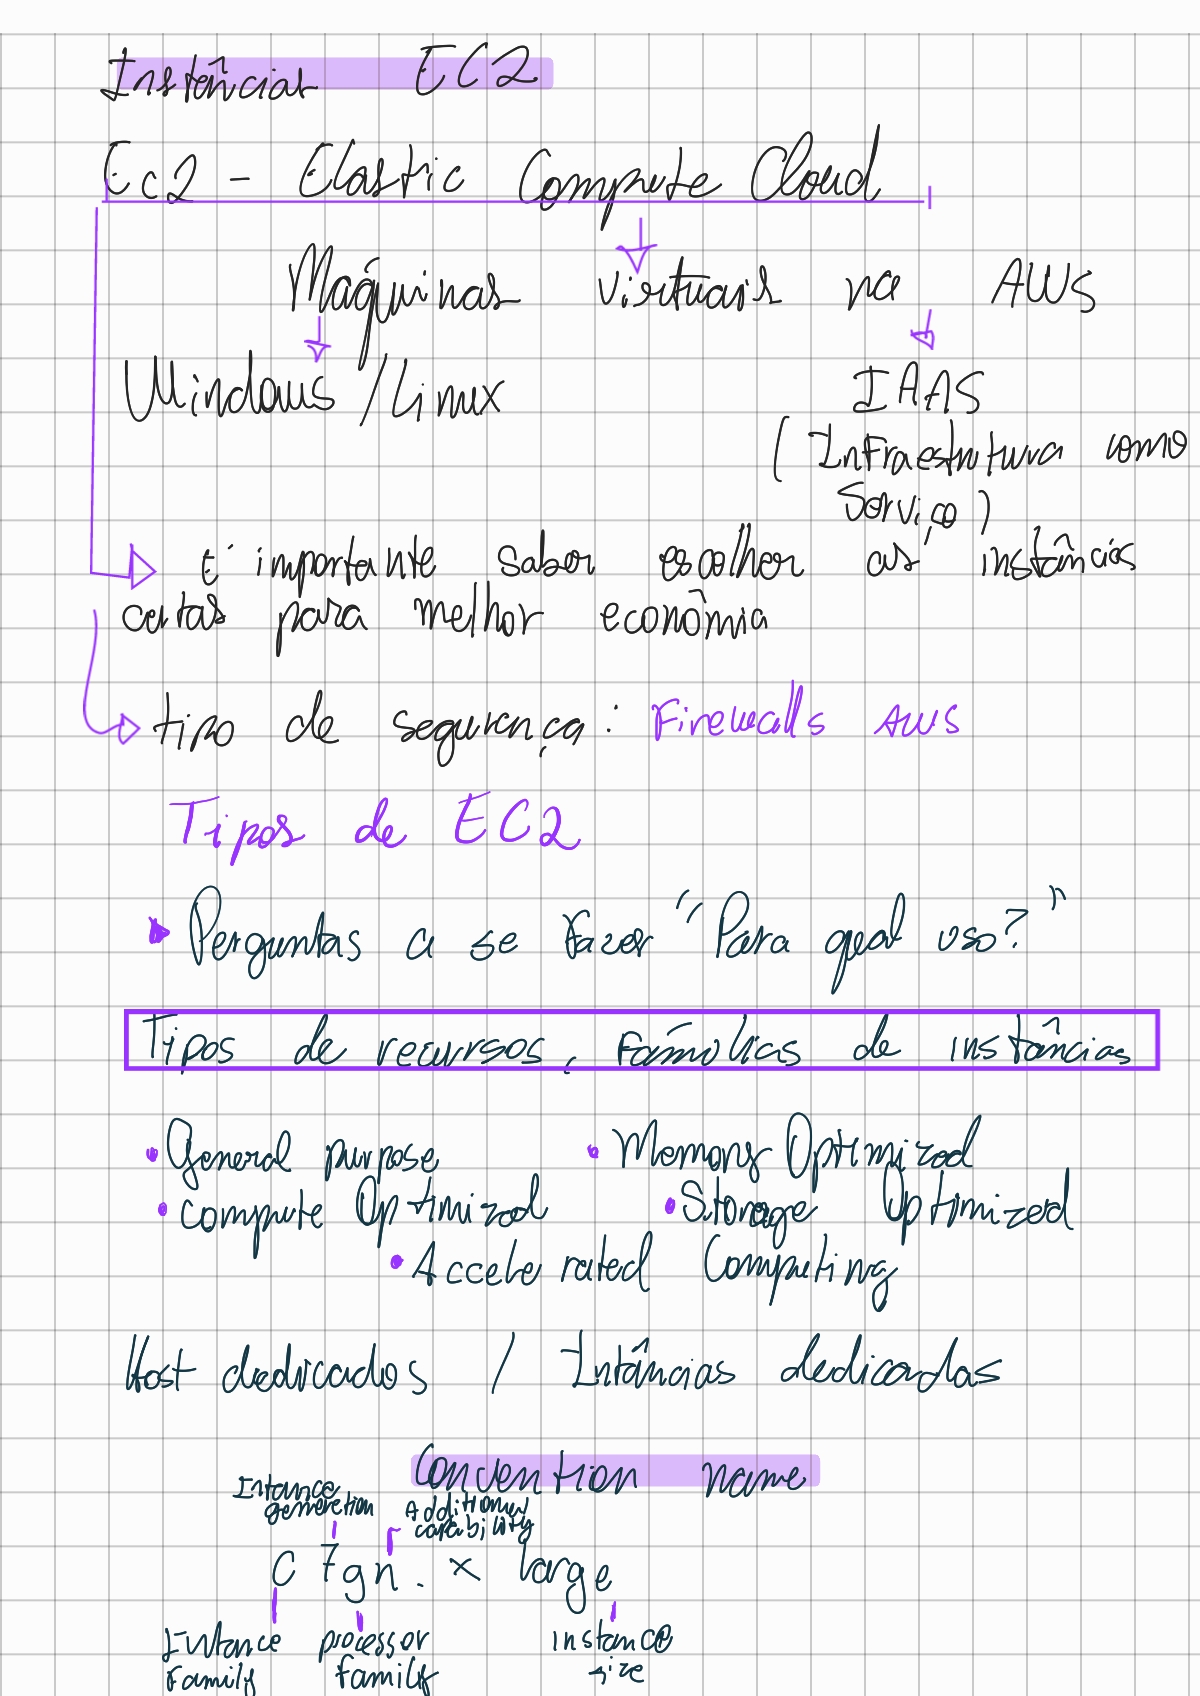 Instâncias EC2
Ec2 - Elastic Compute Cloud
Máquinas virtuais na AWS
Windows / Linux
IAAS
(Infraestrutura como
Serviço)
É importante saber escolher as instâncias
certas para melhor econômia
tipo de segurança: Firewalls AWS
Tipos de EC2
Perguntas a se fazer "Para qual uso?"
Tipos de recursos, famílias de instâncias
• General purpose • Memory Optimized
• compute Optimized • Storage Optimized
• Accelerated Computing
Host dedicados / Intâncias dedicadas
Convention name
Intance generation
Additional capability
C 7gn. x large
Intance family
processor family
instance size